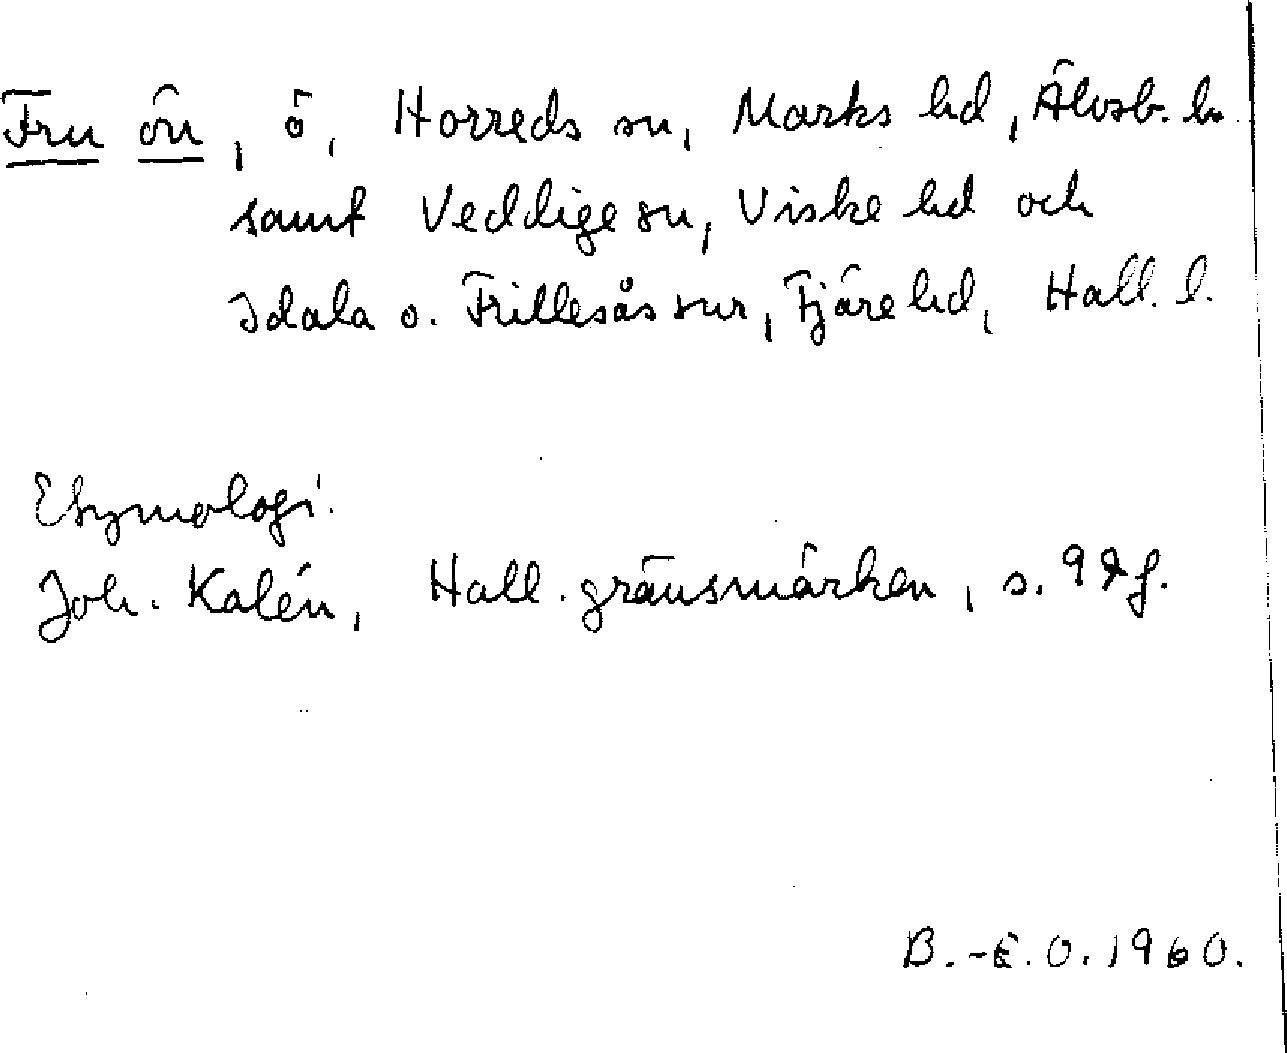 Fru ön, ö, Horreds sn, Marks hd, Älvsb. l.
samt Veddige sn, Viske hd och
Idala o. Frillesås snr, Fjäre hd, Hall. l.
Etymologi.
Joh. Kalén, Hall. gränsmärken, s. f.
B.-E.O. 1960.